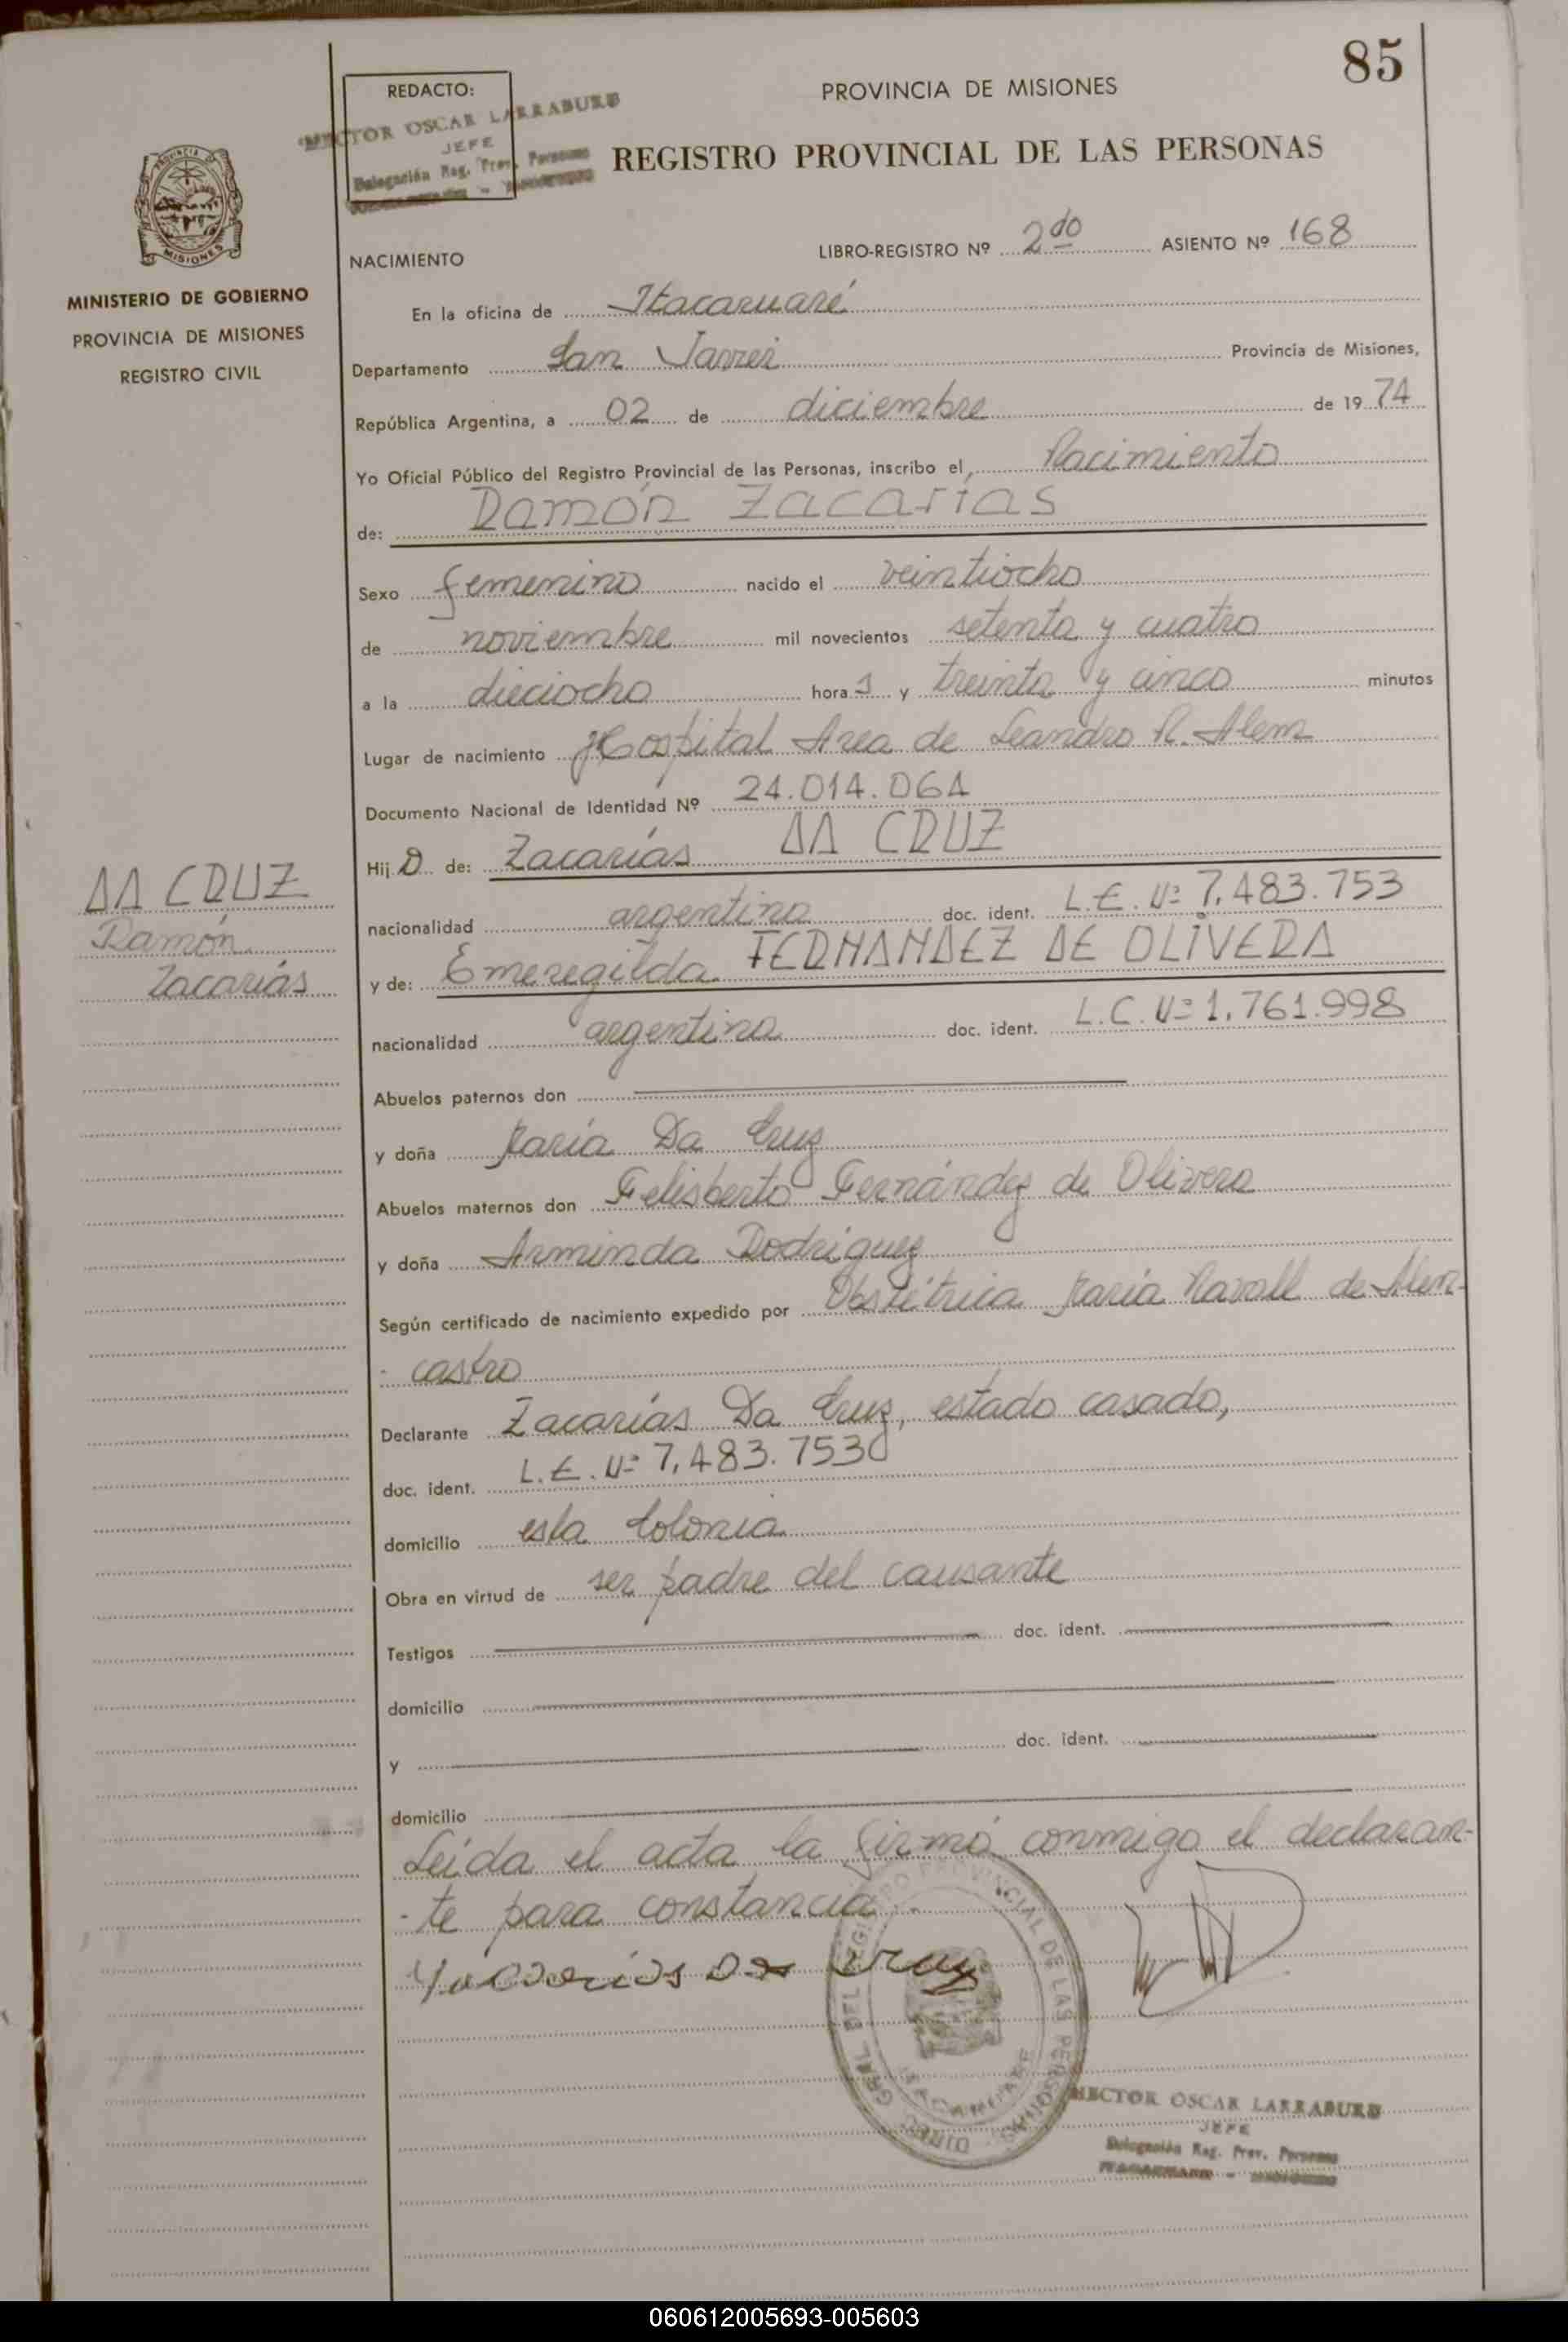 85
REDACTO:
HECTOR OSCAR LARRABURU
JEFE
Delegación Reg. Prov. Personas
PROVINCIA DE MISIONES
REGISTRO PROVINCIAL DE LAS PERSONAS
PROVINCIA DE
MISIONES
MINISTERIO DE GOBIERNO
PROVINCIA DE MISIONES
REGISTRO CIVIL
NACIMIENTO
LIBRO-REGISTRO Nº 2do ASIENTO Nº 168
En la oficina de Itacaruaré
Departamento San Javier Provincia de Misiones,
República Argentina, a 02 de diciembre de 1974
Yo Oficial Público del Registro Provincial de las Personas, inscribo el, Nacimiento
de: Ramón Zacarías
Sexo femenino nacido el veintiocho
de noviembre mil novecientos setenta y cuatro
a la dieciocho hora s y treinta y cinco minutos
Lugar de nacimiento Hospital Area de Leandro N. Alem
Documento Nacional de Identidad Nº 24.014.061
Hij o de: Zacarías DA CRUZ
nacionalidad argentina doc. ident. L.E. Nº 7.483.753
y de: Emeregilda FERNANDEZ DE OLIVERA
nacionalidad argentina doc. ident. L.C. Nº 1.761.998
DA CRUZ
Ramón
Zacarías
Abuelos paternos don
y doña María Da Cruz
Abuelos maternos don Felisberto Fernández de Olivera
y doña Arminda Rodriguez
Según certificado de nacimiento expedido por Obstétrica María Ravall de Alen-
- castro
Declarante Zacarías Da Cruz, estado casado,
doc. ident. L.E. Nº 7.483.753
domicilio esta Colonia
Obra en virtud de ser padre del causante
Testigos doc. ident.
domicilio
y doc. ident.
domicilio
Leída el acta la firmó conmigo el declaran-
- te para constancia.
Zacarias Da Cruz
DIREC. GRAL. DEL REGISTRO PROVINCIAL DE LAS PERSONAS
ITACARUARE
HECTOR OSCAR LARRABURU
JEFE
Delegación Reg. Prov. Personas
ITACARUARE - MISIONES
060612005693-005603